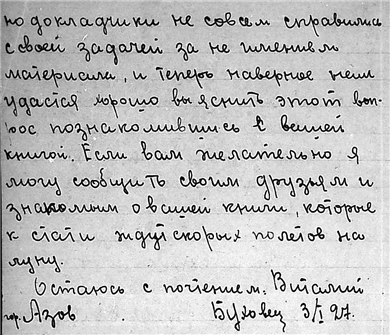 но докладчики не совсем справились
с своей задачей за не имением
материала, и теперь наверное нам
удастся хорошо выяснить этот воп-
рос познакомившись с вашей
книгой. Если вам желательно я
могу сообщить своим друзьям и
знакомым о вашей книги, которые
к стати ждут скорых полетов на
луну.
Остаюсь с почтением, Виталий
гор. Азов Буховец 3/I 27.